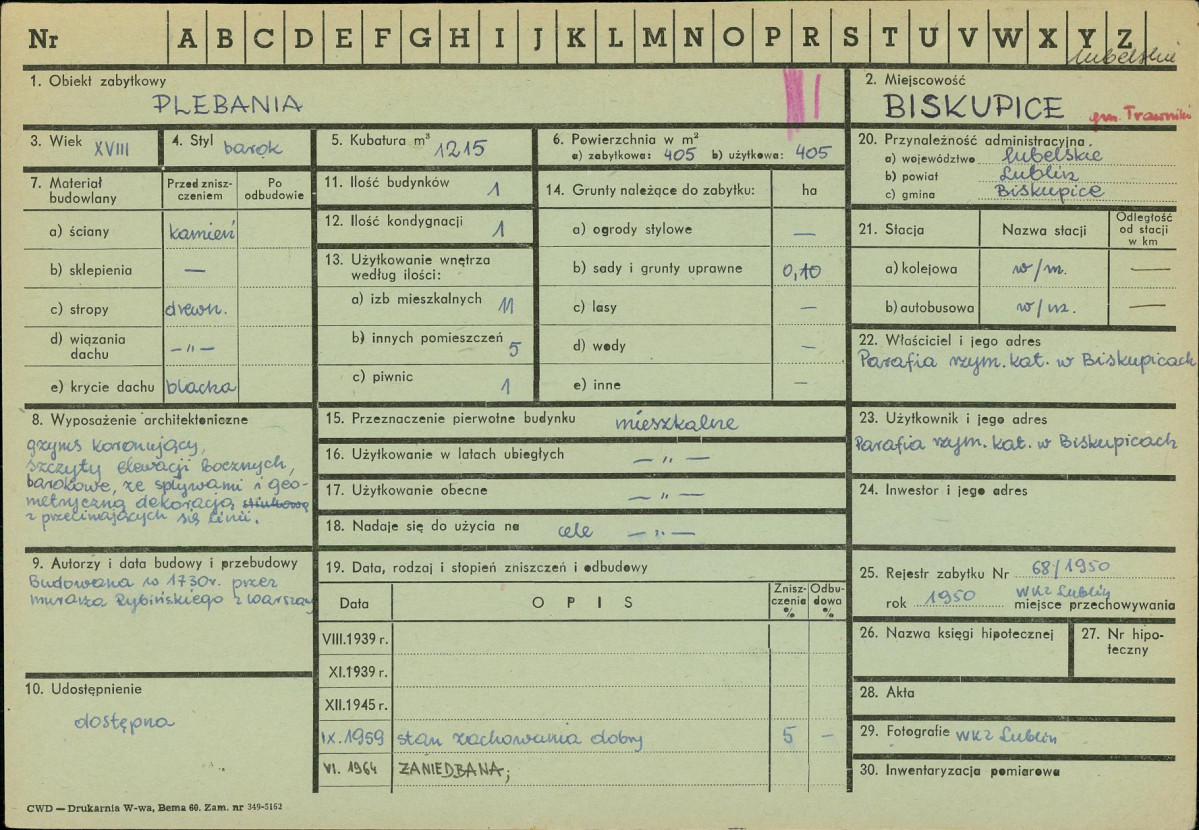 Nr A B C D E F G H I J K L M N O P R S T U V W X Y Z
lubelskie
1. Obiekt zabytkowy
PLEBANIA
2. Miejscowość
BISKUPICE gm. Trawniki
3. Wiek XVIII
4. Styl barok
5. Kubatura m³ 1215
6. Powierzchnia w m²
a) zabytkowa: 405 b) użytkowa: 405
20. Przynależność administracyjna
a) województwo lubelskie
b) powiat Lublin
c) gmina Biskupice
7. Materiał budowlany
Przed zniszczeniem
Po odbudowie
a) ściany kamień
b) sklepienia —
c) stropy drewn.
d) wiązania dachu —„—
e) krycie dachu blacha
11. Ilość budynków 1
12. Ilość kondygnacji 1
13. Użytkowanie wnętrza
według ilości:
a) izb mieszkalnych 11
b) innych pomieszczeń 5
c) piwnic 1
14. Grunty należące do zabytku: ha
a) ogrody stylowe —
b) sady i grunty uprawne 0,10
c) lasy —
d) wody —
e) inne —
21. Stacja Nazwa stacji Odległość od stacji w km
a) kolejowa w/m. —
b) autobusowa w/m. —
22. Właściciel i jego adres
Parafia rzym. kat. w Biskupicach
8. Wyposażenie architektoniczne
gzyms koronujący,
szczyty elewacji bocznych,
barokowe, ze spływami i geo-
metryczną dekoracją stiukową
z przecinających się linii.
15. Przeznaczenie pierwotne budynku mieszkalne
16. Użytkowanie w latach ubiegłych —„—
17. Użytkowanie obecne —„—
18. Nadaje się do użycia na cele —„—
23. Użytkownik i jego adres
Parafia rzym. kat. w Biskupicach
24. Inwestor i jego adres
9. Autorzy i data budowy i przebudowy
Budowana w 1730r. przez
murarza Rybińskiego z Warszawy
19. Data, rodzaj i stopień zniszczeń i odbudowy
Data OPIS Zniszczenia % Odbudowa %
VIII.1939 r.
XI.1939 r.
XII.1945 r.
IX.1959 stan zachowania dobry 5 —
VI. 1964 ZANIEDBANA;
25. Rejestr zabytku Nr 68/1950
rok 1950 WKZ Lublin
miejsce przechowywania
26. Nazwa księgi hipotecznej
27. Nr hipo-
teczny
10. Udostępnienie
dostępna
28. Akta
29. Fotografie WKZ Lublin
30. Inwentaryzacja pomiarowa
CWD — Drukarnia W-wa, Bema 60. Zam. nr 349-5162